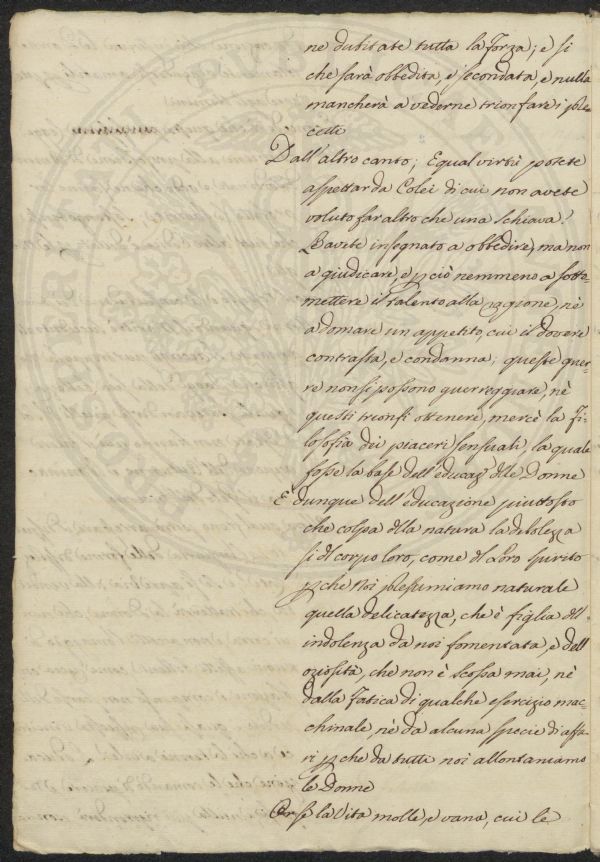 ne dubitate tutta la Forza; e si
che sarà obbedita, e secondata, e nulla
mancherà a vederne trionfare i
cetti
Dall'altro canto; E qual virtù potete
aspettar da Colei di cui non avete
voluto far altro che una schiava?
L'avete insegnato a obbedire, ma non
a giudicare, e pciò nemmeno a sotto=
mettere il talento alla ragione, nè
a domare un appetito, cui il dovere
contrasta, e condanna; queste guer=
re non si possono guerreggiare, nè
questi trionfi ottenere, mercè la Fi=
losofia dei piaceri sensuali, la quale
fosse la base dell'educaz.e dlle Donne
È dunque dell'educazione piuttosto
che colpa dlla natura la debolezza
sì dl corpo loro, come dl Loro spirito
pche Noi presumiamo naturale
quella delicatezza, che è figlia dll'
indolenza da noi fomentata, e dell'
oziosità, che non è scossa mai, nè
dalla Fatica di qualche esercizio mac=
chinale, nè da alcuna specie di affa=
ri pche da tutti noi allontaniamo
le Donne
la Vita molle, e vana, cui le